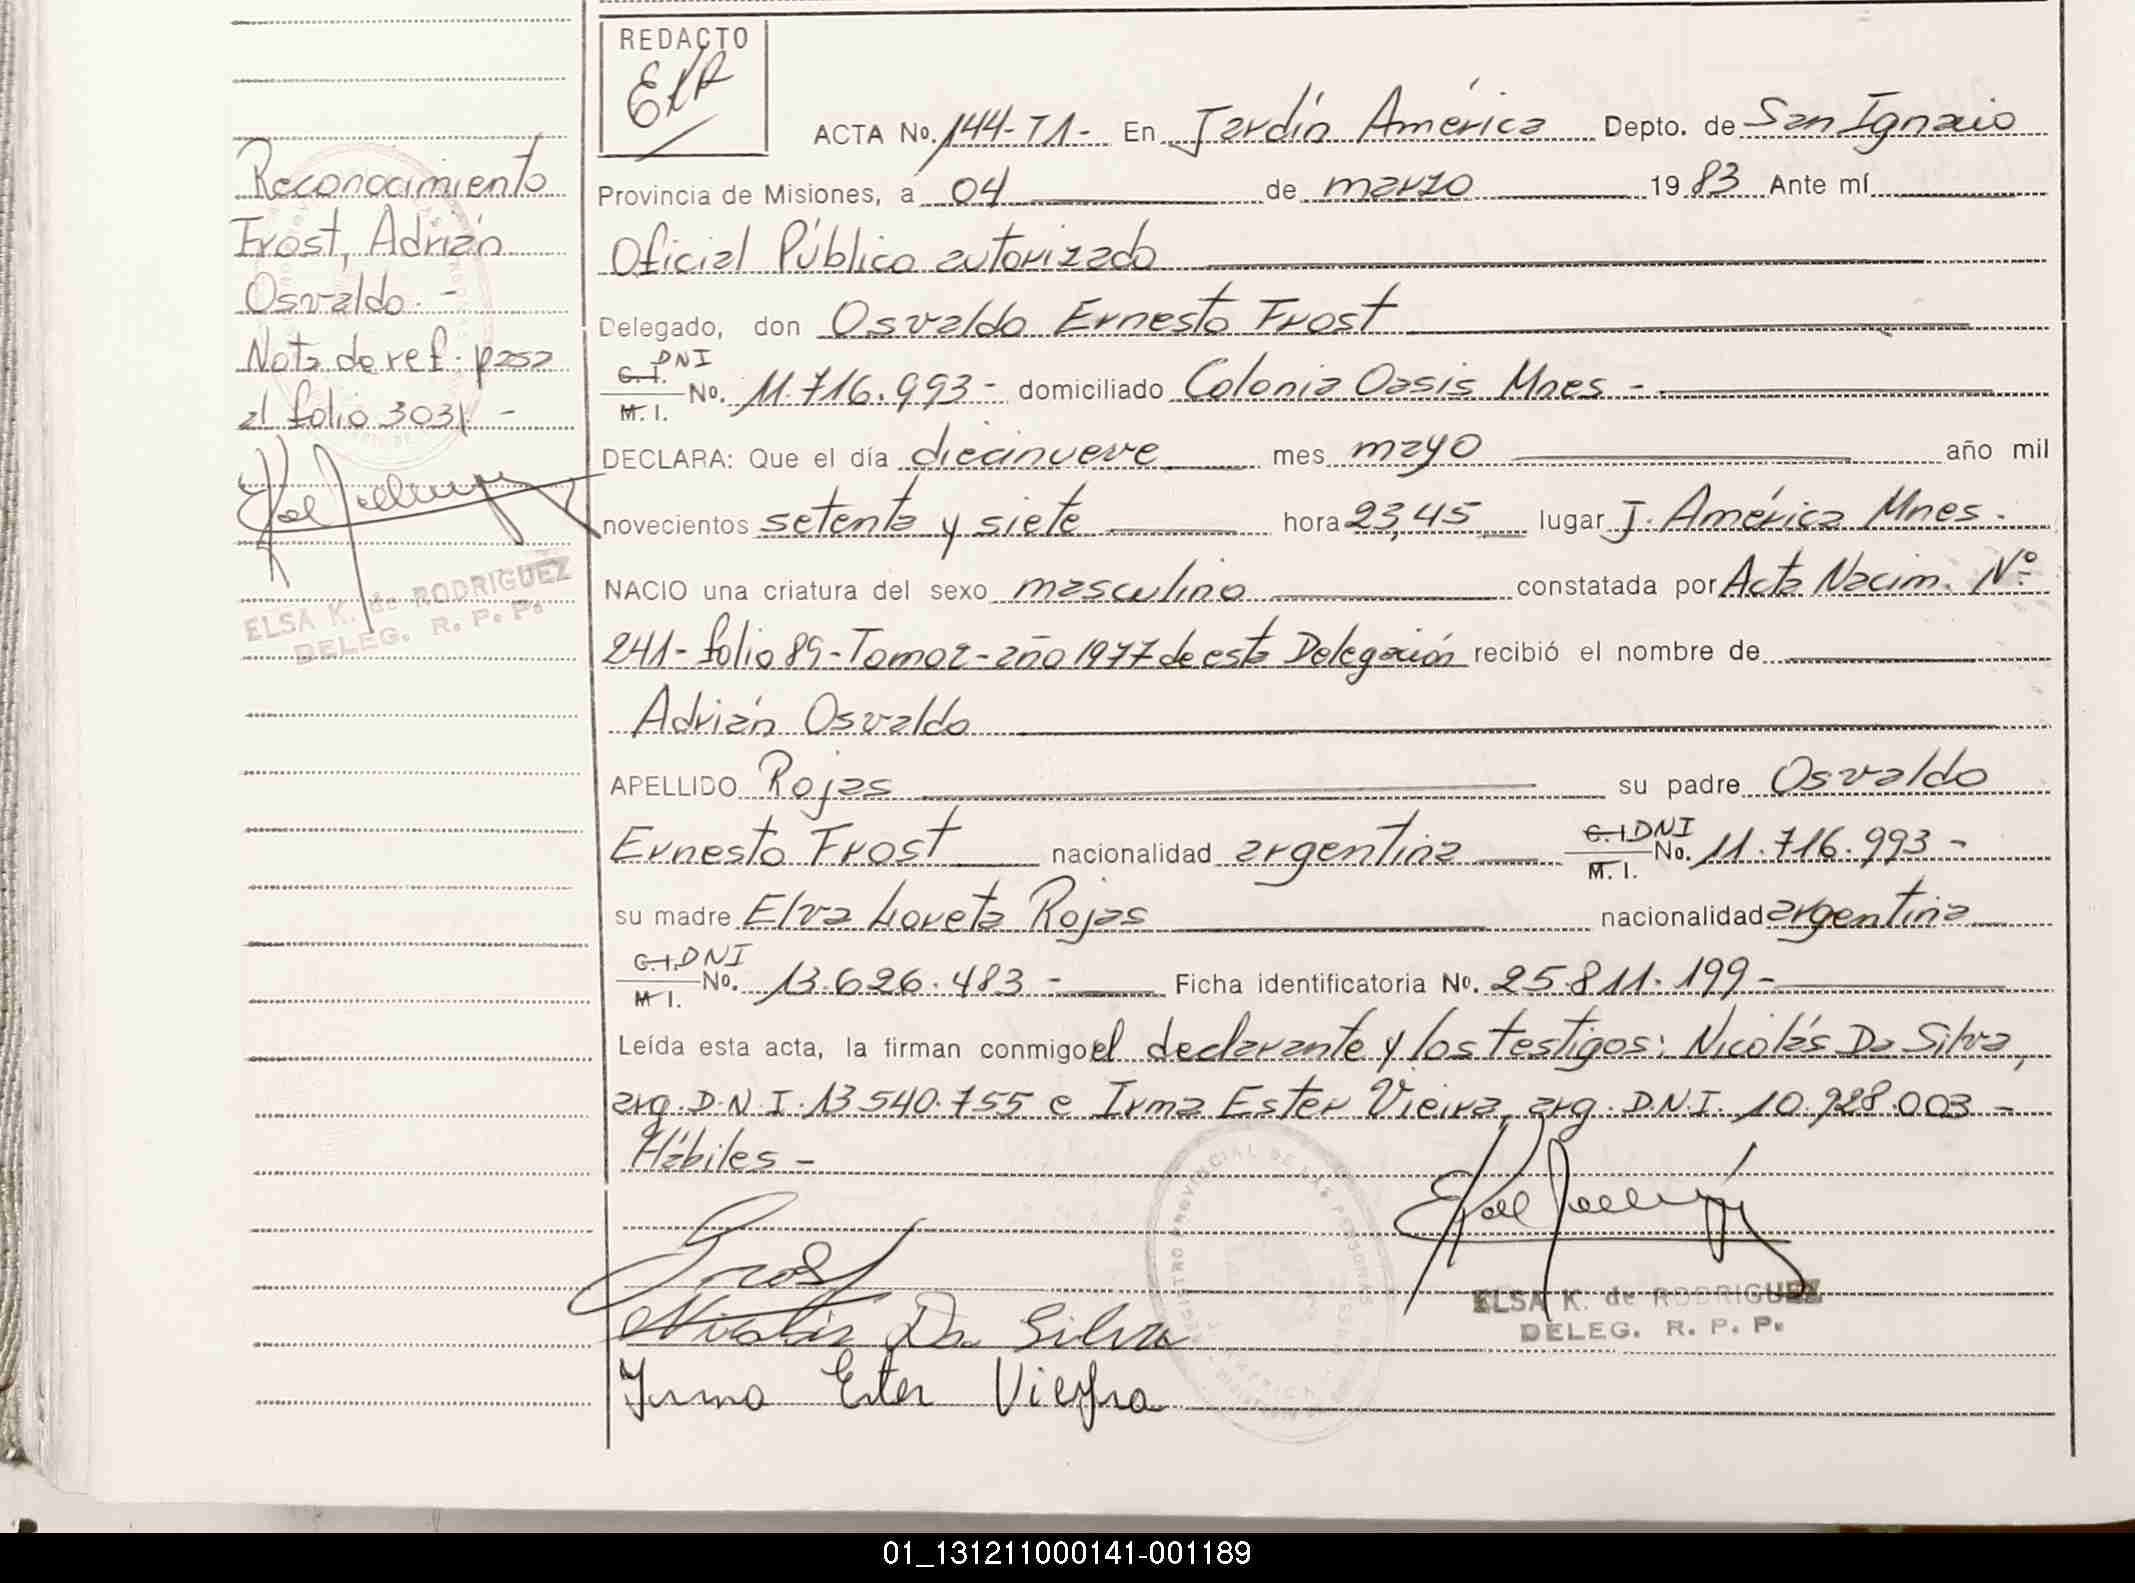 Reconocimiento
Frost, Adrián
Osvaldo. -
Nota de ref. pasa
al folio 303). -
ELSA K. de RODRIGUEZ
DELEG. R. P. P.
REDACTO
ACTA No. 144-T1- En Jardín América Depto. de San Ignacio
Provincia de Misiones, a 04 de marzo 1983 Ante mí
Oficial Público autorizado
Delegado, don Osvaldo Ernesto Frost
C.I. DNI
M. I. No. 11.716.993- domiciliado Colonia Oasis Mnes -
DECLARA: Que el día diecinueve mes mayo año mil
novecientos setenta y siete hora 23,45 lugar J. América Mnes.
NACIO una criatura del sexo masculino constatada por Acta Nacim. Nº
241-folio 89-Tomo 2-año 1977 de esta Delegación recibió el nombre de
Adrián Osvaldo
APELLIDO Rojas su padre Osvaldo
Ernesto Frost nacionalidad argentina C.I DNI M. I. No. 11.716.993-
su madre Elva Loreta Rojas nacionalidad argentina
C.I. DNI
M I. No. 13.626.483- Ficha identificatoria No. 25.811.199-
Leída esta acta, la firman conmigo el declarante y los testigos: Nicolás Da Silva,
arg. D.N.I. 13.540.755 e Irma Ester Vieira, arg. D.N.I. 10.928.003 -
Hábiles -
Frost
Nicolás Da Silva
Irma Ester Vieyra
REGISTRO PROVINCIAL DE LAS PERSONAS
ELSA K. de RODRIGUEZ
DELEG. R. P. P.
01_131211000141-001189